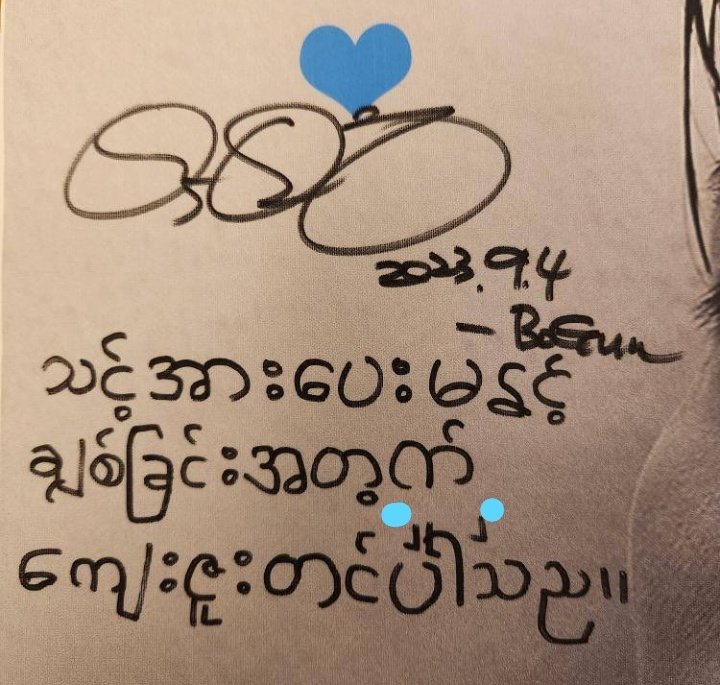 2023.9.4
- BoGum
သင့်အားပေးမနှင့်
ချစ်ခြင်းအတွက်
ကျေးဇူးတင်ပါသည။